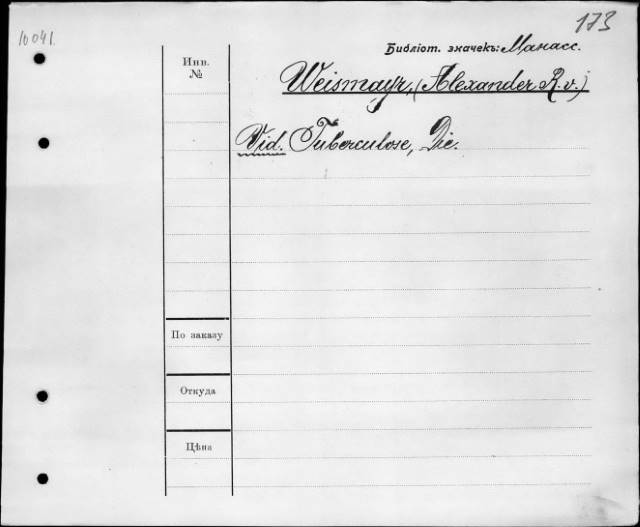 10041.
173
Библіот. значекъ: Манасс.
Инв.
№
Weismayr, (Alexander R. v.)
Vid. Tuberculose, Die.
По заказу
Откуда
Цѣна